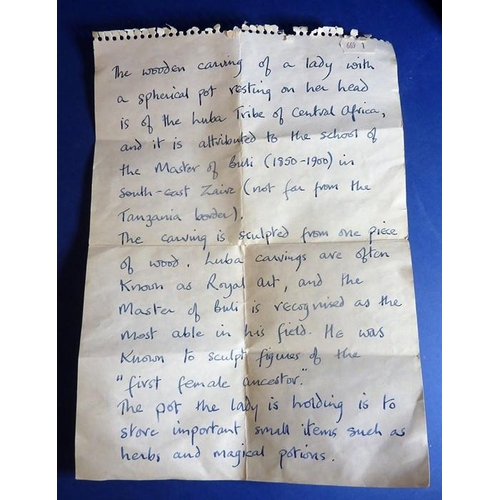 The wooden carving of a lady with
a spherical pot resting on her head
is of the Luba Tribe of Central Africa,
and it is attributed to the school of
the Master of Buli (1850-1900) in
South-east Zaire (not far from the
Tanzania border).
The carving is sculpted from one piece
of wood. Luba carvings are often
Known as Royal art, and the
Master of Buli is recognised as the
most able in his field. He was
Known to sculpt figures of the
"first female ancestor."
The pot the lady is holding is to
store important small items such as
herbs and magical potions.